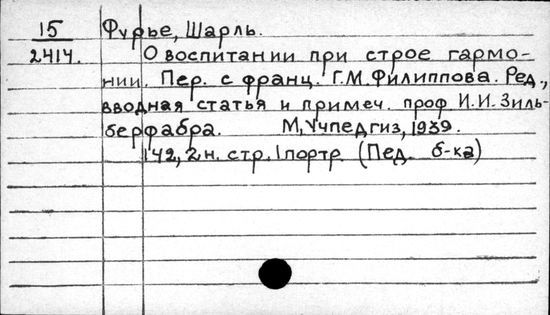 15 Фурье, Шарль.
2414. О воспитании при строе гармо-
нии. Пер. с франц. Г.М.Филиппова. Ред.,
вводная статья и примеч. проф. И.И.Зиль-
берфабра. М, Учпедгиз, 1939.
142, 2 н. стр. 1 портр. (Пед. б-ка)